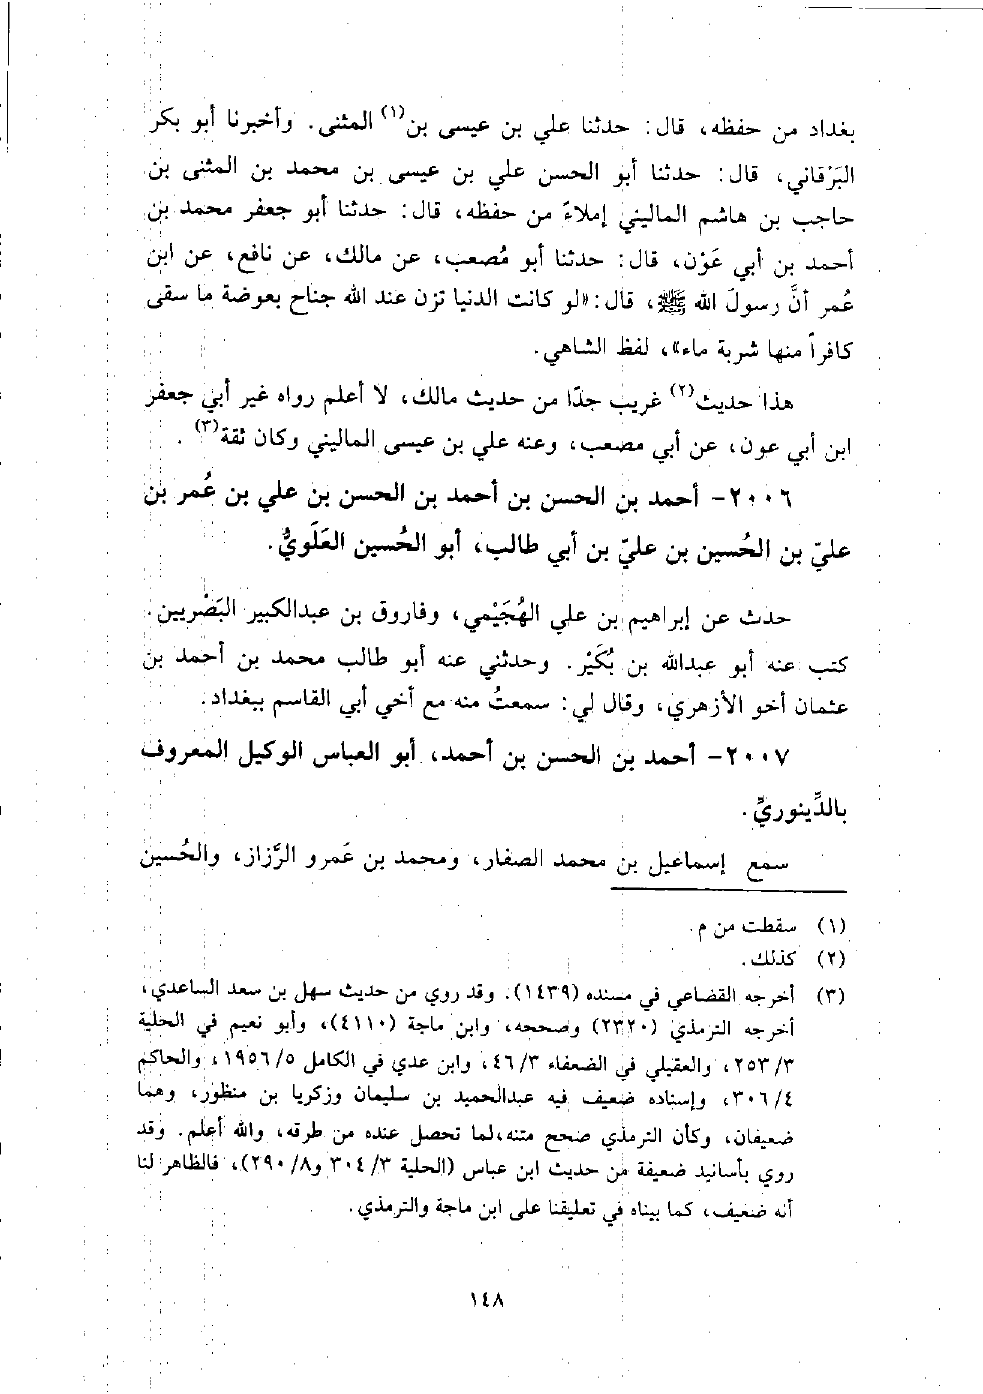 بغداد من حفظه، قال: حدثنا علي بن عيسى بن(١) المثنى. وأخبرنا أبو بكر
البَرْقاني، قال: حدثنا أبو الحسن علي بن عيسى بن محمد بن المثنى بن
حاجب بن هاشم الماليني إملاءً من حفظه، قال: حدثنا أبو جعفر محمد بن
أحمد بن أبي عَوْن، قال: حدثنا أبو مُصعب، عن مالك، عن نافع، عن ابن
عُمر أنَّ رسولَ الله ﷺ، قال: «لو كانت الدنيا تزن عند الله جناح بعوضة ما سقى
كافراً منها شربة ماء»، لفظ الشاهي.
هذا حديث(٢) غريب جدًا من حديث مالك، لا أعلم رواه غير أبي جعفر
ابن أبي عون، عن أبي مصعب، وعنه علي بن عيسى الماليني وكان ثقة(٣).
٢٠٠٦- أحمد بن الحسن بن أحمد بن الحسن بن علي بن عُمر بن
عليّ بن الحُسين بن عليّ بن أبي طالب، أبو الحُسين العَلَويُّ.
حدث عن إبراهيم بن علي الهُجَيْمي، وفاروق بن عبدالكبير البَصْريين.
كتب عنه أبو عبدالله بن بُكَيْر. وحدثني عنه أبو طالب محمد بن أحمد بن
عثمان أخو الأزهري، وقال لي: سمعتُ منه مع أخي أبي القاسم ببغداد.
٢٠٠٧- أحمد بن الحسن بن أحمد، أبو العباس الوكيل المعروف
بالدِّينوريِّ.
سمع إسماعيل بن محمد الصفار، ومحمد بن عَمرو الرَّزاز، والحُسين
(١) سقطت من م.
(٢) كذلك.
(٣) أخرجه القضاعي في مسنده (١٤٣٩). وقد روي من حديث سهل بن سعد الساعدي،
أخرجه الترمذي (٢٣٢٠) وصححه، وابن ماجة (٤١١٠)، وأبو نعيم في الحلية
٣/ ٢٥٣، والعقيلي في الضعفاء ٣/ ٤٦، وابن عدي في الكامل ٥/ ١٩٥٦، والحاكم
٤/ ٣٠٦، وإسناده ضعيف فيه عبدالحميد بن سليمان وزكريا بن منظور، وهما
ضعيفان، وكأن الترمذي صحح متنه،لما تحصل عنده من طرقه، والله أعلم. وقد
روي بأسانيد ضعيفة من حديث ابن عباس (الحلية ٣/ ٣٠٤ و٨/ ٢٩٠)، فالظاهر لنا
أنه ضعيف، كما بيناه في تعليقنا على ابن ماجة والترمذي.
١٤٨